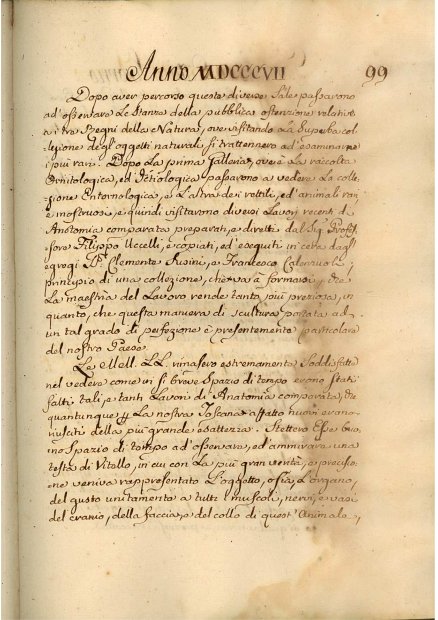 Anno MDCCCVII 99
Dopo aver percorso queste diverse Sale passarono
ad'osservare le Stanze della pubblica ostensione relative
a i tre Regni della Natura, ove visitando la superba col-
lezione degl'oggetti naturali si trattennero ad'esaminare
i più rari. Dopo la prima Galleria, ov'è la raccolta
Ornitologica, ed Ictiologica passarono a vedere la colle-
zione Entomologica, e l'altra dei rettili, ed'animali rari
e mostruosi, e quindi visitarono diversi Lavori recenti di
Anatomia comparata preparati, e diretti dal Sig. Profes-
sore Filippo Uccelli, e copiati, ed'eseguiti in cera dagl'
egregi Clemente Susini, e Francesco Calenzuoli;
principio di una collezione, che va a formarsi, e che
la maestria del Lavoro rende tanto più preziosa, in
quanto, che questa maniera di scultura portata ad
un tal grado di perfezione è presentemente particolare
del nostro Paese.
Le MM. LL. rimasero estremamente soddisfatte
nel vedere come in sì breve spazio di tempo erano stati
fatti tali, e tanti Lavori di Anatomia comparata, che
quantunque p la nostra Toscana affatto nuovi erano
riusciti della più grande esattezza. Stettero Esse buo-
no spazio di tempo ad'osservare, ed'ammirare una
testa di Vitello, in cui con la più gran verità, e precisio-
ne veniva rappresentato l'oggetto, o sia l'organo,
del gusto unitamente a tutti i muscoli, nervi, e vasi
del cranio, della faccia, e del collo di quest'Animale,